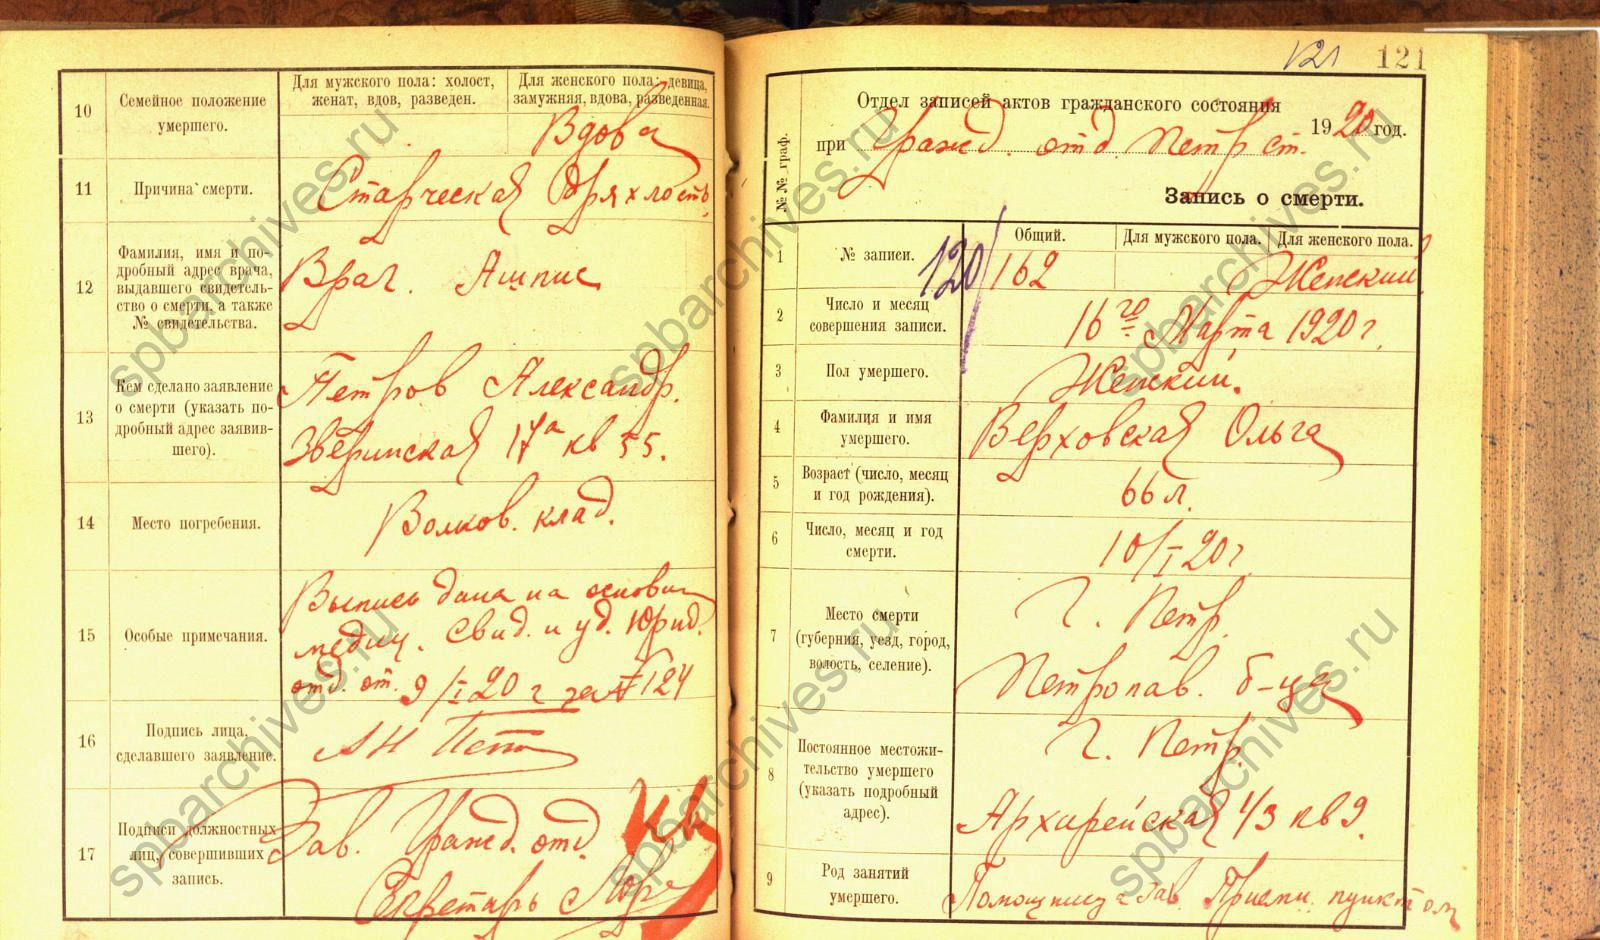 10
Семейное положение
умершего.
Для мужского пола: холост,
женат, вдов, разведен.
Для женского пола: девица,
замужняя, вдова, разведенная.
Вдова
11
Причина смерти.
Старческая дряхлость
12
Фамилия, имя и по-
дробный адрес врача,
выдавшего свидетель-
ство о смерти, а также
№ свидетельства.
Врач. Ашпис
13
Кем сделано заявление
о смерти (указать по-
дробный адрес заявив-
шего).
Петров Александр.
Зверинская 17а кв 55.
14
Место погребения.
Волков. клад.
15
Особые примечания.
Выпись дана на основан
медиц. свид. и уд. Юрид.
отд. от. 9/I 20 г за № 124
16
Подпись лица,
сделавшего заявление.
АН Пет
17
Подписи должностных
лиц, совершивших
запись.
Зав. Гражд. отд.
Секретарь
121
121
№№ граф.
Отдел записей актов гражданского состояния
при Гражд. отд. Петр ст. 1920 год.
Запись о смерти.
1
№ записи.
120
Общий.
Для мужского пола.
Для женского пола.
162
Женский.
2
Число и месяц
совершения записи.
16го Марта 1920 г.
3
Пол умершего.
Женский.
4
Фамилия и имя
умершего.
Верховская Ольга
5
Возраст (число, месяц
и год рождения).
66 л.
6
Число, месяц и год
смерти.
10/I 20 г
7
Место смерти
(губерния, уезд, город,
волость, селение).
Г. Петр.
Петропав. б-ца
8
Постоянное местожи-
тельство умершего
(указать подробный
адрес).
Г. Петр.
Архирейская 1/3 кв 9.
9
Род занятий
умершего.
Помощница Зав. Приемн. пунктом
spbarchives.ru
spbarchives.ru
spbarchives.ru
spbarchives.ru
spbarchives.ru
spbarchives.ru
spbarchives.ru
spbarchives.ru